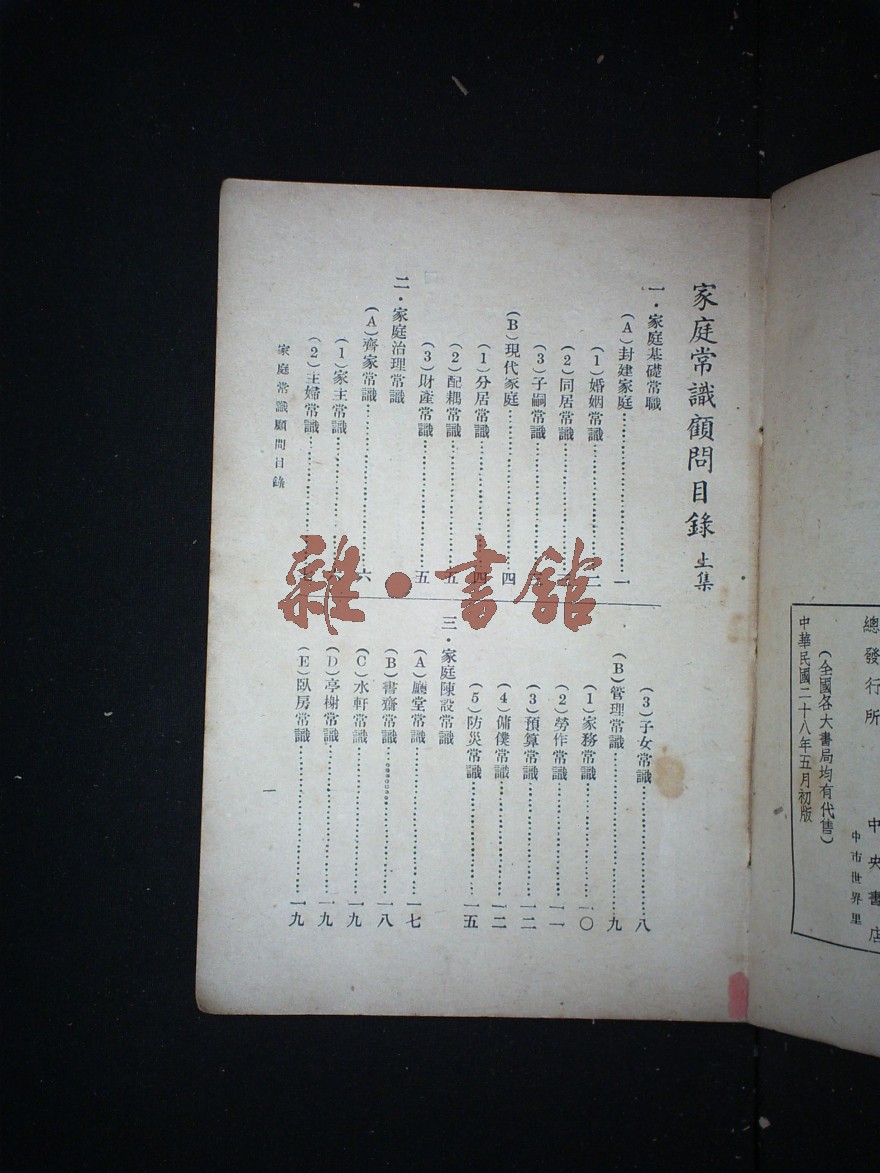 總發行所 中央書店
中市世界里
(全國各大書局均有代售)
中華民國二十八年五月初版
家庭常識顧問目錄 上集
一・家庭基礎常職
(A)封建家庭……一
(1)婚姻常識……二
(2)同居常識……
(3)子嗣常識……三
(B)現代家庭……四
(1)分居常識……四
(2)配耦常識……五
(3)財產常識……五
二・家庭治理常識
(A)齊家常識……六
(1)家主常識……
(2)主婦常識……七
(3)子女常識……八
(B)管理常識……九
(1)家務常識……一〇
(2)勞作常識……一一
(3)預算常識……一二
(4)傭僕常識……一二
(5)防災常識……一五
三・家庭陳設常識
(A)廳堂常識……一七
(B)書齋常識……一八
(C)水軒常識……一九
(D)亭榭常識……一九
(E)臥房常識……一九
家庭常識顧問目錄
一
雜・書館